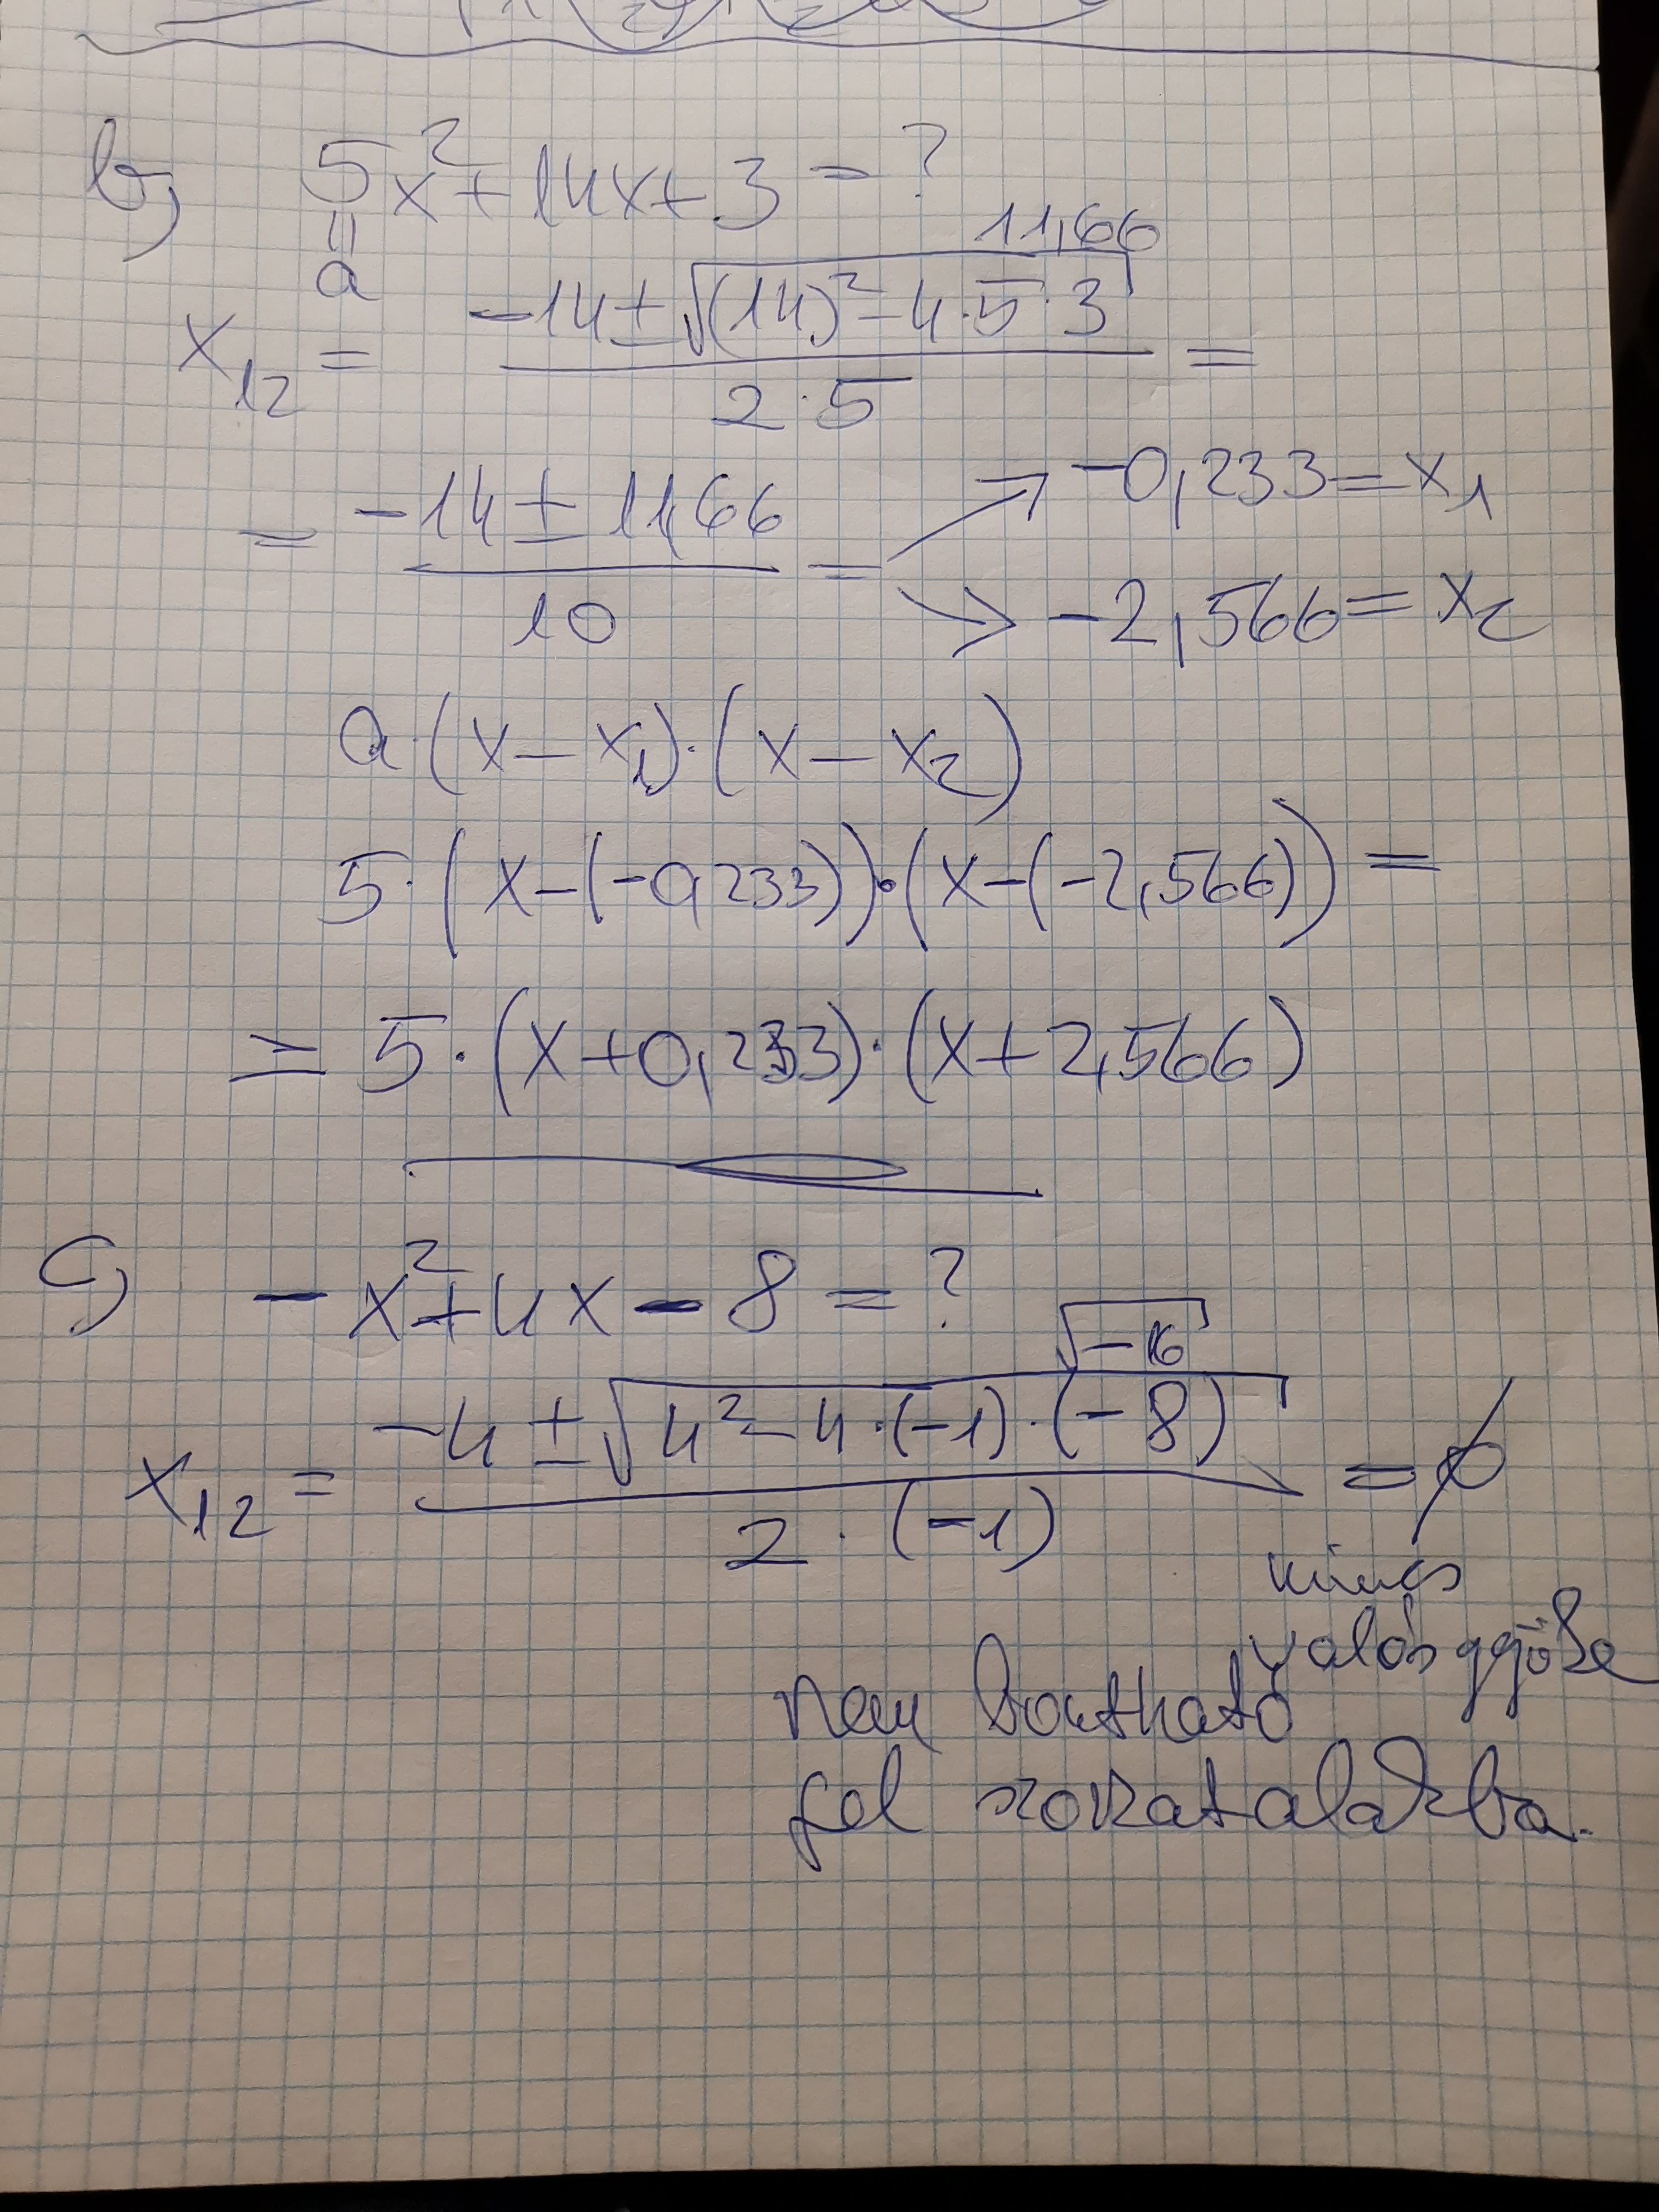 b) 5x²+14x+3=?
॥
a
11,66
x₁₂ = (-14±√((14)²-4·5·3))/(2·5) =
= (-14±11,66)/10 = → -0,233=x₁
→ -2,566=x₂
a·(x-x₁)·(x-x₂)
5·(x-(-0,233))·(x-(-2,566))=
=5·(x+0,233)·(x+2,566)
c) -x²+4x-8=?
√-16
x₁₂ = (-4±√(4²-4·(-1)·(-8)))/(2·(-1)) = ∅
nincs
valós gyöke
nem bontható
fel szorzatalakba.